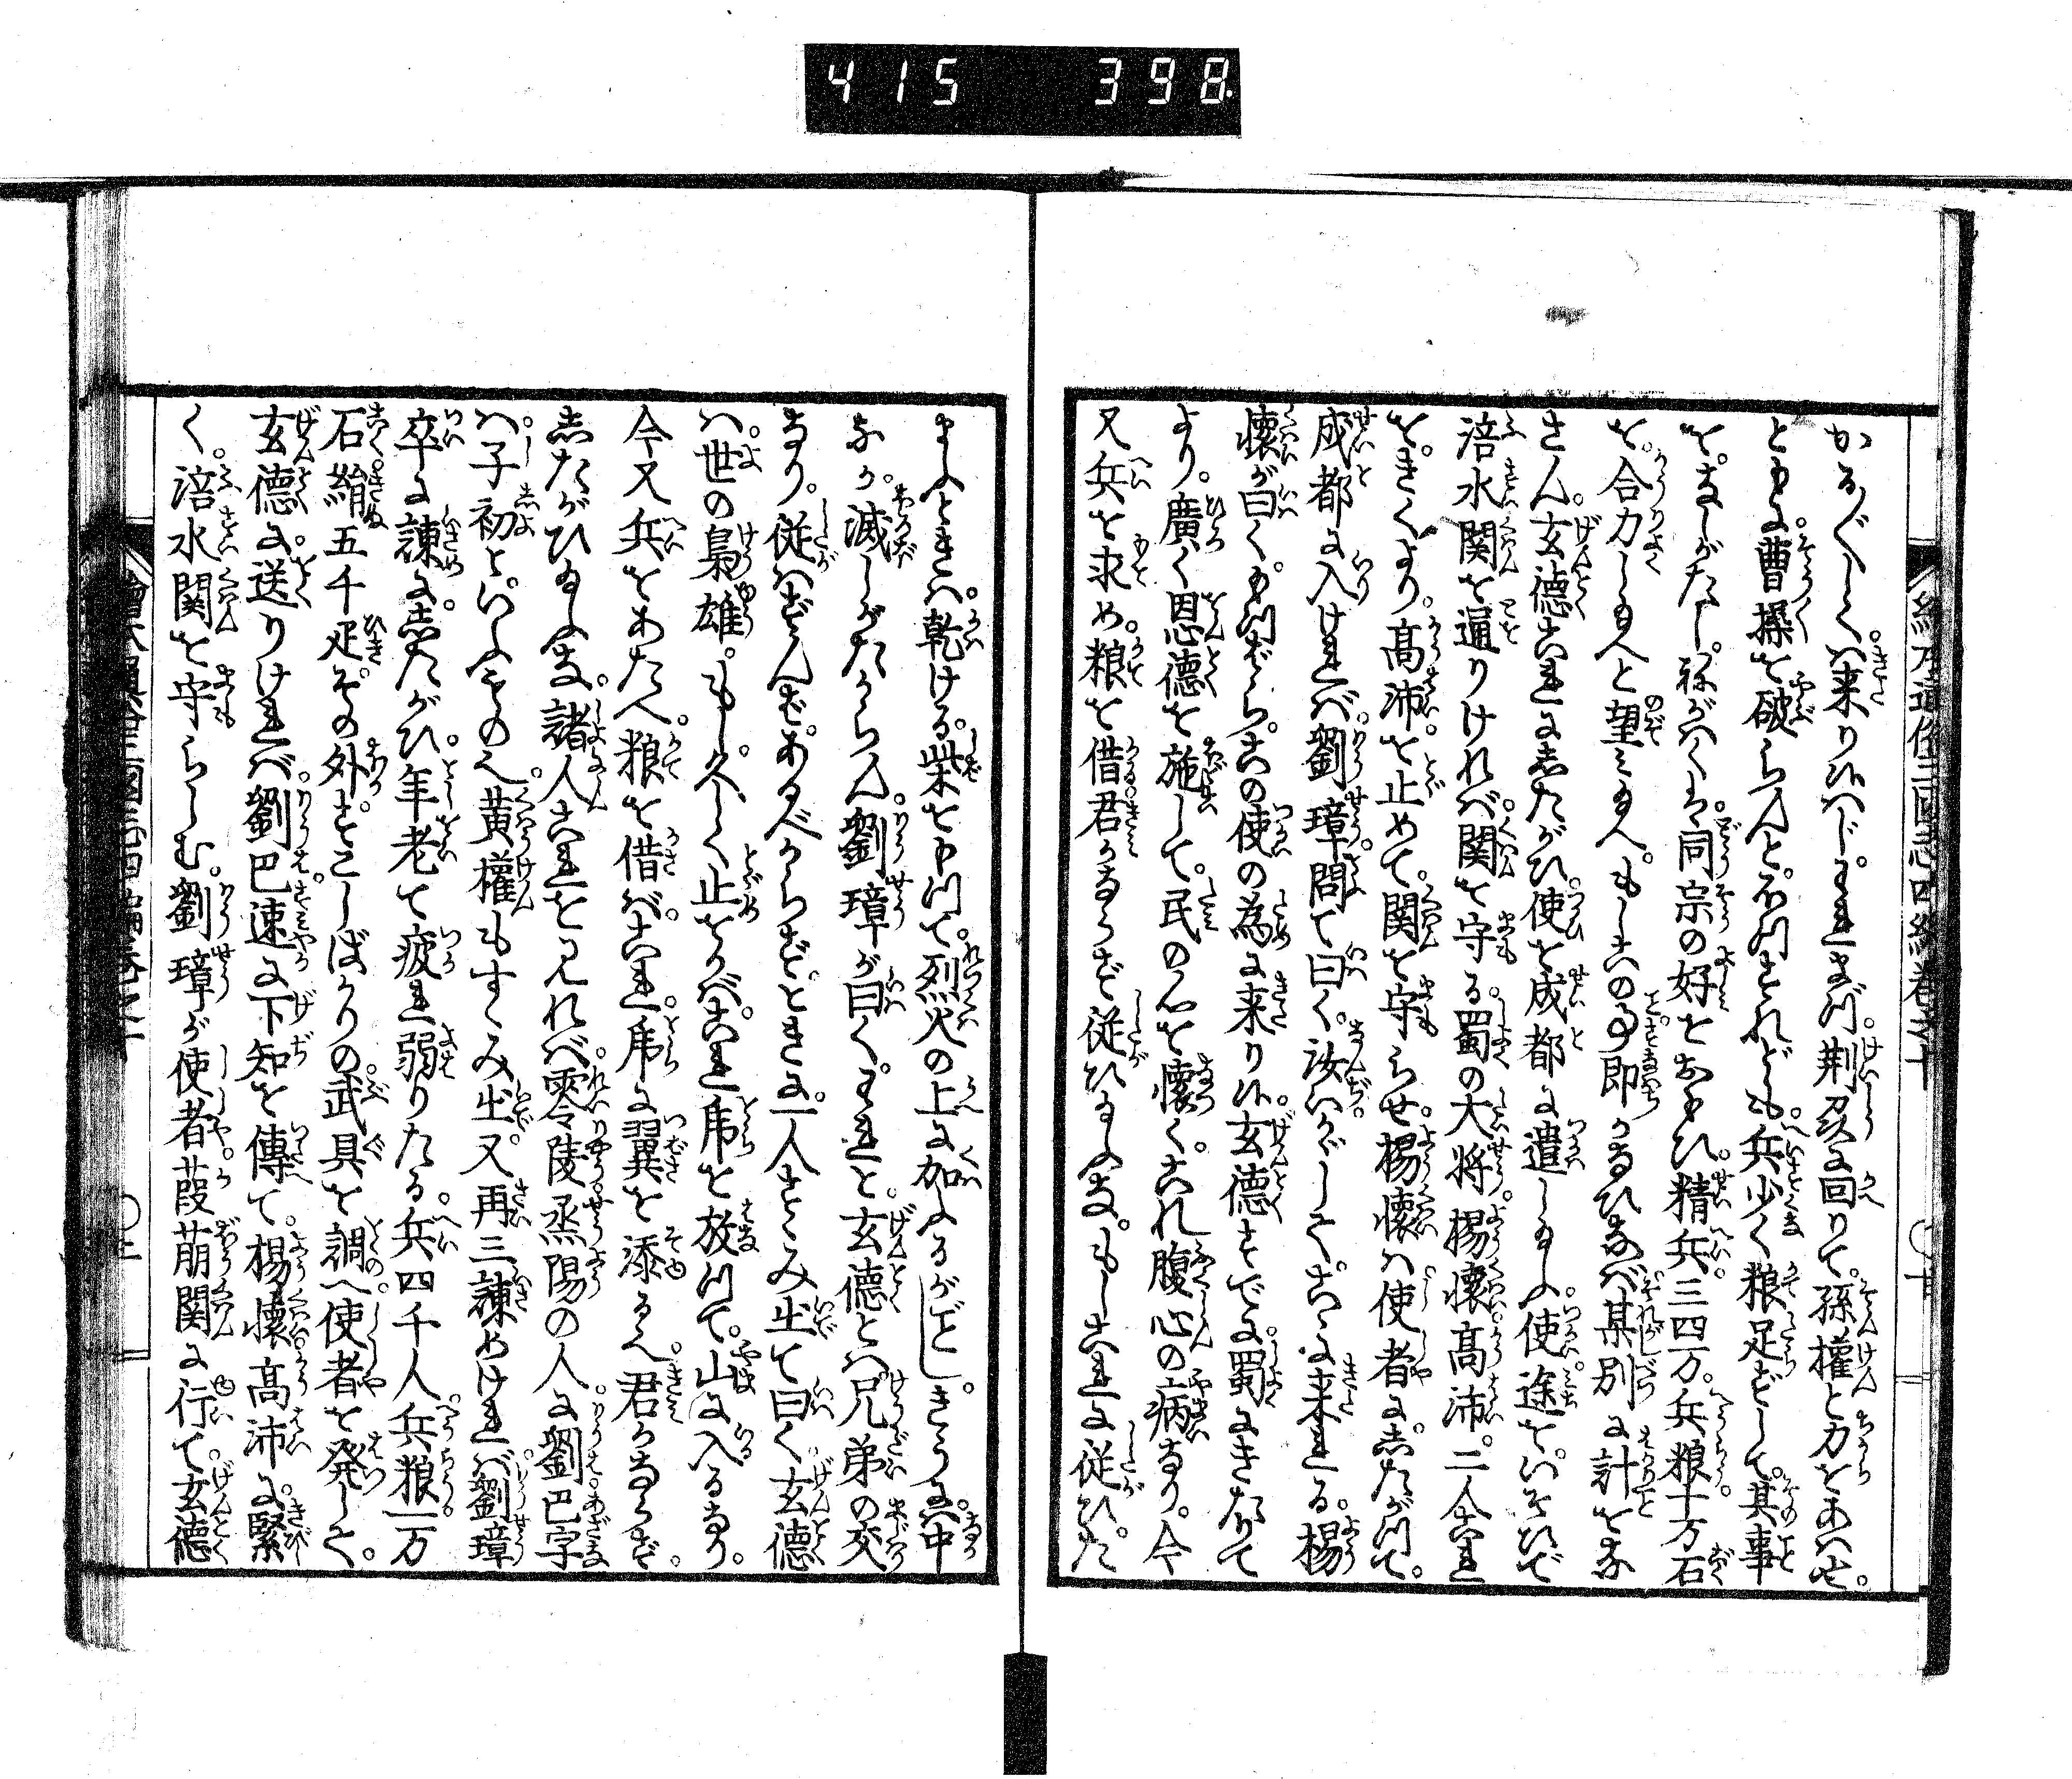 415 398
かろ〴〵しくハ来り候ハじ。それまづ。荊州に回りて。孫權と力をあハせ。
ともに。曹操を破らんと。存ずれども。兵少く粮足ずして。其事
を。なしがたし。ねがハくハ。同宗の好をおもひ。精兵三四万。兵粮十万石
を。合力し玉へと望み玉へ。もし此の事即かなひなバ某別に計をな
さん。玄徳これにしたがひ。使を成都に遣し玉ふ。使途を。いそひで
涪水関を過りけれバ。関を守る。蜀の大将。楊懐。高沛。二人これ
を。きくより。高沛を止めて。関を守らせ。楊懐ハ使者に。したがつて。
成都に入けれバ。劉璋。問て曰く。汝いかゞしてか。こゝに来れる。楊
懐が曰く。もつぱら。此の使の為に来り候。玄徳すでに。蜀にきたりて
より。廣く恩徳を施して。民の心を懐く。これ腹心の病なり。今
又兵を求め。粮を借。君かならず従ひ玉ふな。もしこれに従ひ。た
まふときハ。乾ける。柴をもつて。烈火の上に加ふるがごとし。きうに。中
なか。滅しがたからん。劉璋が曰く。それと。玄徳とハ。兄弟の交
なり。従ハずんバ。あるべからず。ときに。一人すゝみ出て曰く。玄徳
ハ。世の梟雄。もし。久しく止をかバ。これ乕を放つて。山に入るなり。
今又兵をあたへ。粮を借バ。これ乕に翼を添るへ。君かならず。
したがひ玉ふな。諸人これを見れバ。零陵。烝陽の人に。劉巴字
ハ。子初と。いふものへ。黄權もすゝみ出。又再三諫めけれバ。劉璋
卒に諫に。したがひ。年老て疲れ弱りたる。兵四千人。兵粮。一万
石。絹五千疋。その外。すこしばかりの。武具を調へ。使者を発して。
玄徳に。送りけれバ。劉巴。速に下知を傳て。楊懐。高沛に。緊
く。涪水関を守らしむ。劉璋が使者。葭萌関に行て。玄徳